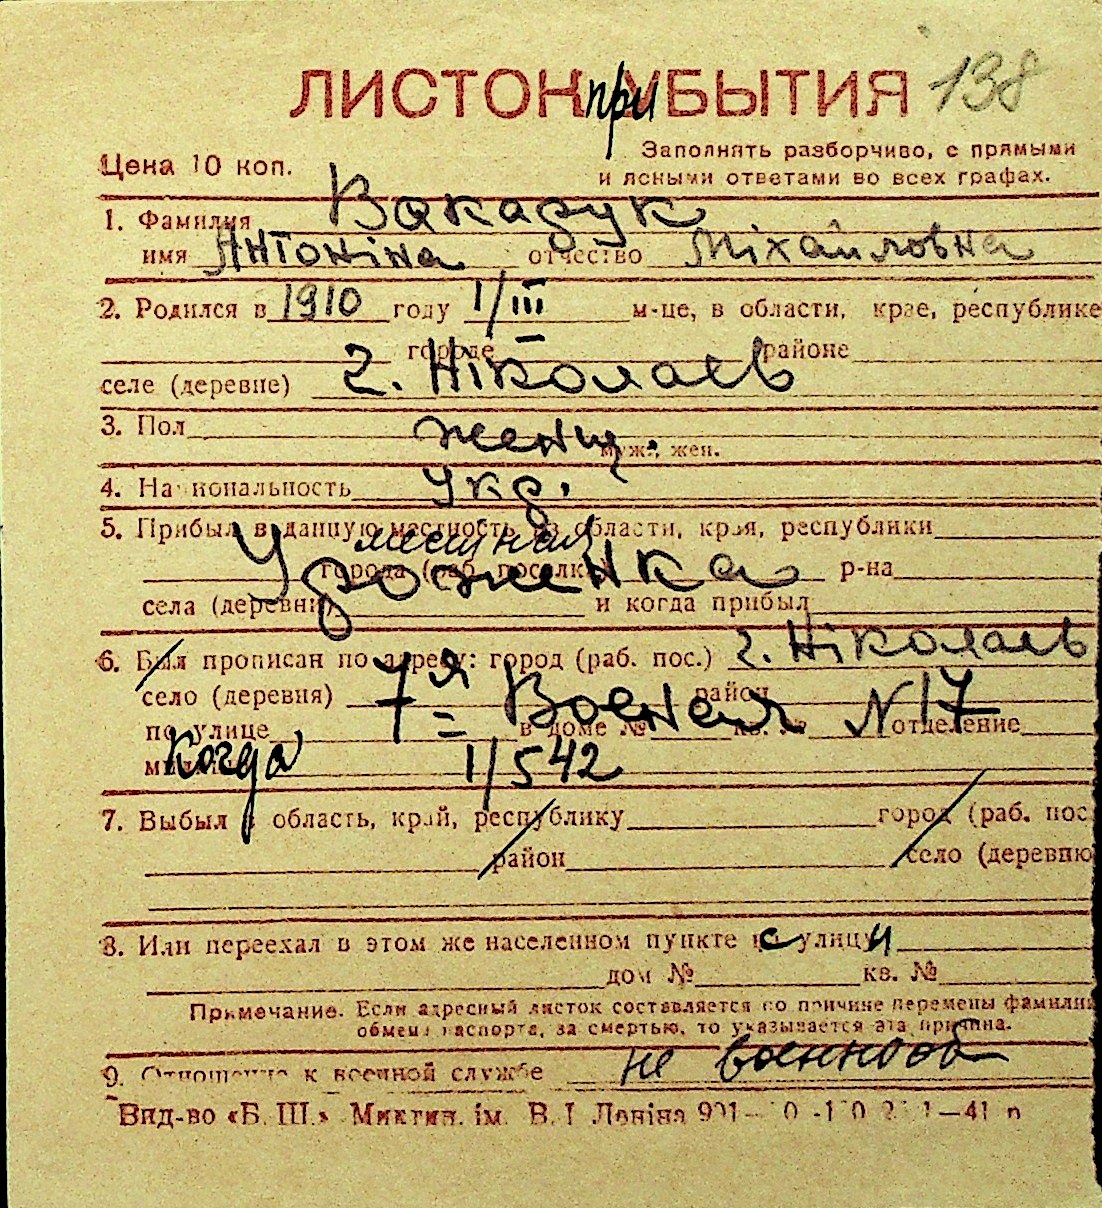 138
ЛИСТОК при УБЫТИЯ
Цена 10 коп.
Заполнять разборчиво, с прямыми
и ясными ответами во всех графах.
1. Фамилия Вакарук
имя Антоніна отчество Міхайловна
2. Родился в 1910 году 1/III м-це, в области, крае, республике
городе районе
селе (деревне) г. Ніколаев
3. Пол женщ. муж., жен.
4. Национальность укр.
5. Прибыл в данную местность из области, края, республики
местная
города (раб. поселка) Уроженка р-на
села (деревни) и когда прибыл
6. Был прописан по адресу: город (раб. пос.) г. Ніколаев
село (деревня) 7я Военая район N 17
по улице в доме № кв. № отделение
Когда 1/5 42
7. Выбыл в область, край, республику город (раб. пос.
район село (деревню
8. Или переехал в этом же населенном пункте с улицы
дом № кв. №
Примечание. Если адресный листок составляется по причине перемены фамилии
обмена паспорта, за смертью, то указывается эта причина.
9. Отношение к военной службе не военнооб
Вид-во «Б. Ш.» Микгин. ім. В. І Леніна